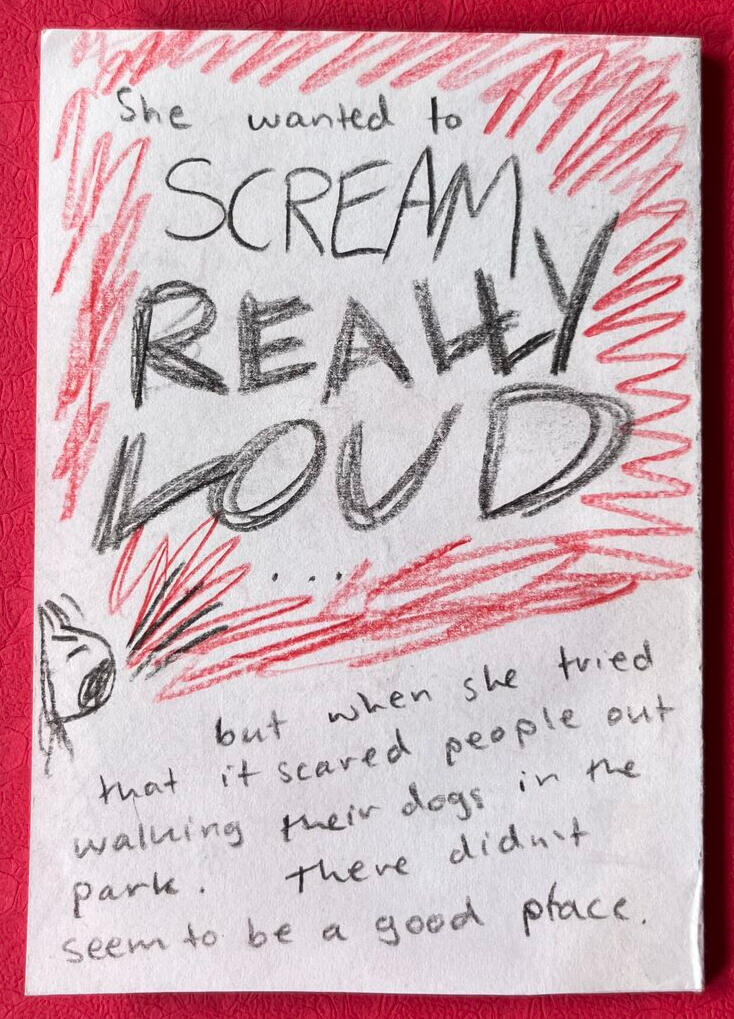 She wanted to
SCREAM
REALLY
LOUD
...
but when she tried
that it scared people out
walking their dogs in the
park. There didn't
seem to be a good place.